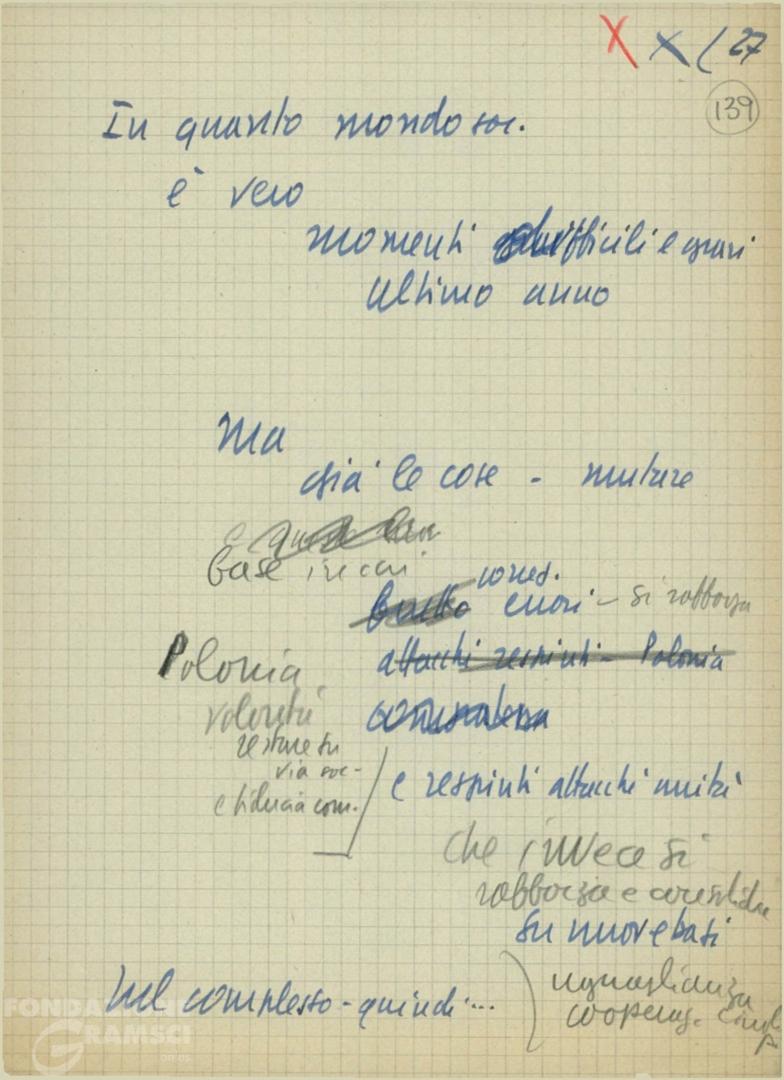 X X ( 27
139
In quanto mondo soc.
è vero
momenti difficili e gravi
ultimo anno
Ma
già le cose - mutare
base
si rafforza
Polonia
attacchi respinti - Polonia
volontà
restare su
via soc-
e fiducia com.
e respinti attacchi unità
che invece si
rafforza e consolida
su nuove basi
Nel complesso - quindi...
uguaglianza
cooperaz.
FONDAZIONE
GRAMSCI
onlus